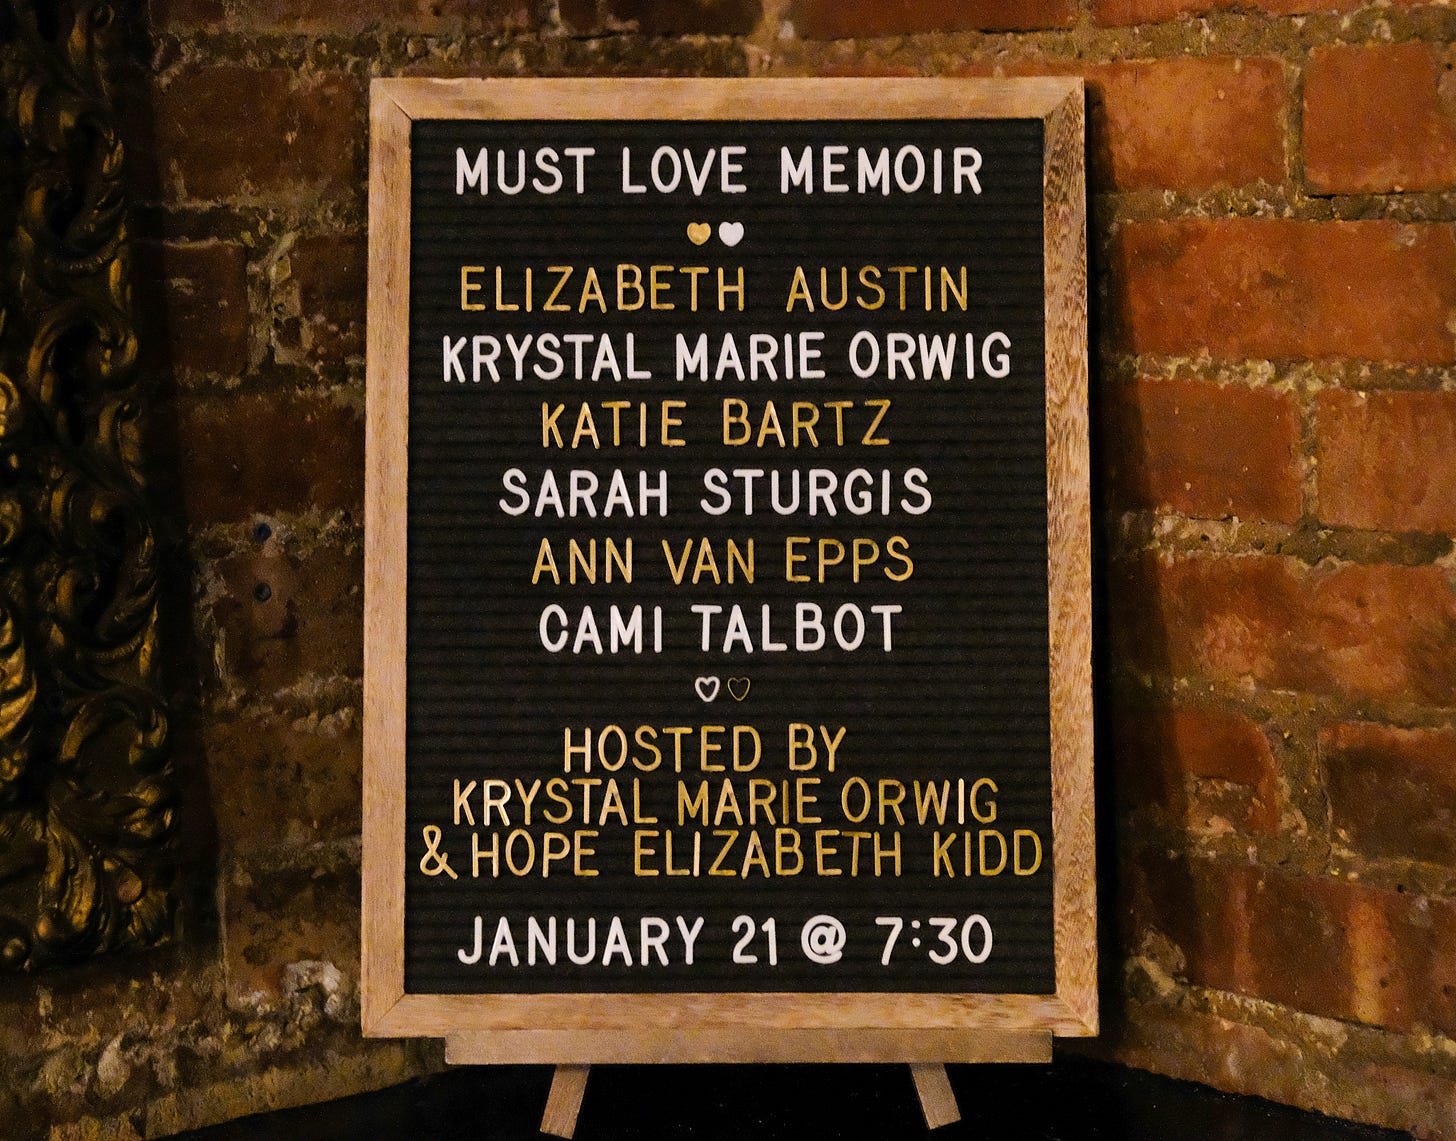 MUST LOVE MEMOIR
ELIZABETH AUSTIN
KRYSTAL MARIE ORWIG
KATIE BARTZ
SARAH STURGIS
ANN VAN EPPS
CAMI TALBOT
HOSTED BY
KRYSTAL MARIE ORWIG
& HOPE ELIZABETH KIDD
JANUARY 21 @ 7:30